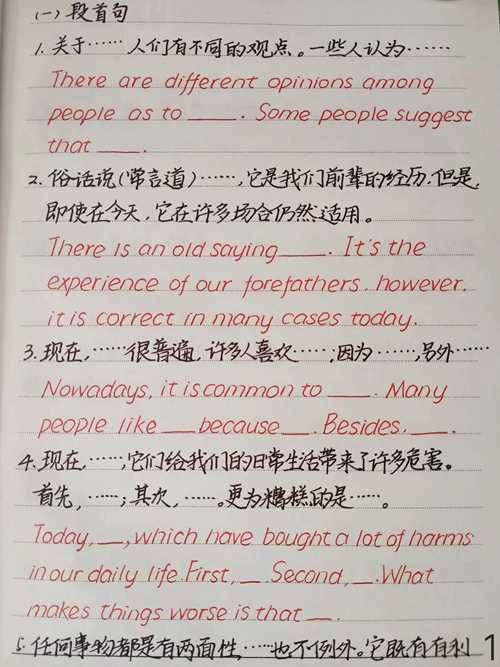 (一) 段首句
1. 关于……人们有不同的观点。一些人认为……
There are different opinions among
people as to ____. Some people suggest
that ____.
2. 俗话说(常言道)……,它是我们前辈的经历,但是,
即使在今天,它在许多场合仍然适用。
There is an old saying____. It's the
experience of our forefathers. however.
it is correct in many cases today.
3. 现在,……很普遍,许多人喜欢……,因为……,另外……
Nowadays, it is common to ____. Many
people like ___because___. Besides, ___.
4. 现在,……,它们给我们的日常生活带来了许多危害。
首先,……;其次,……。更为糟糕的是……。
Today, __, which have bought a lot of harms
in our daily life. First, __. Second, __. What
makes things worse is that __.
5. 任何事物都是有两面性,……也不例外。它既有有利 1